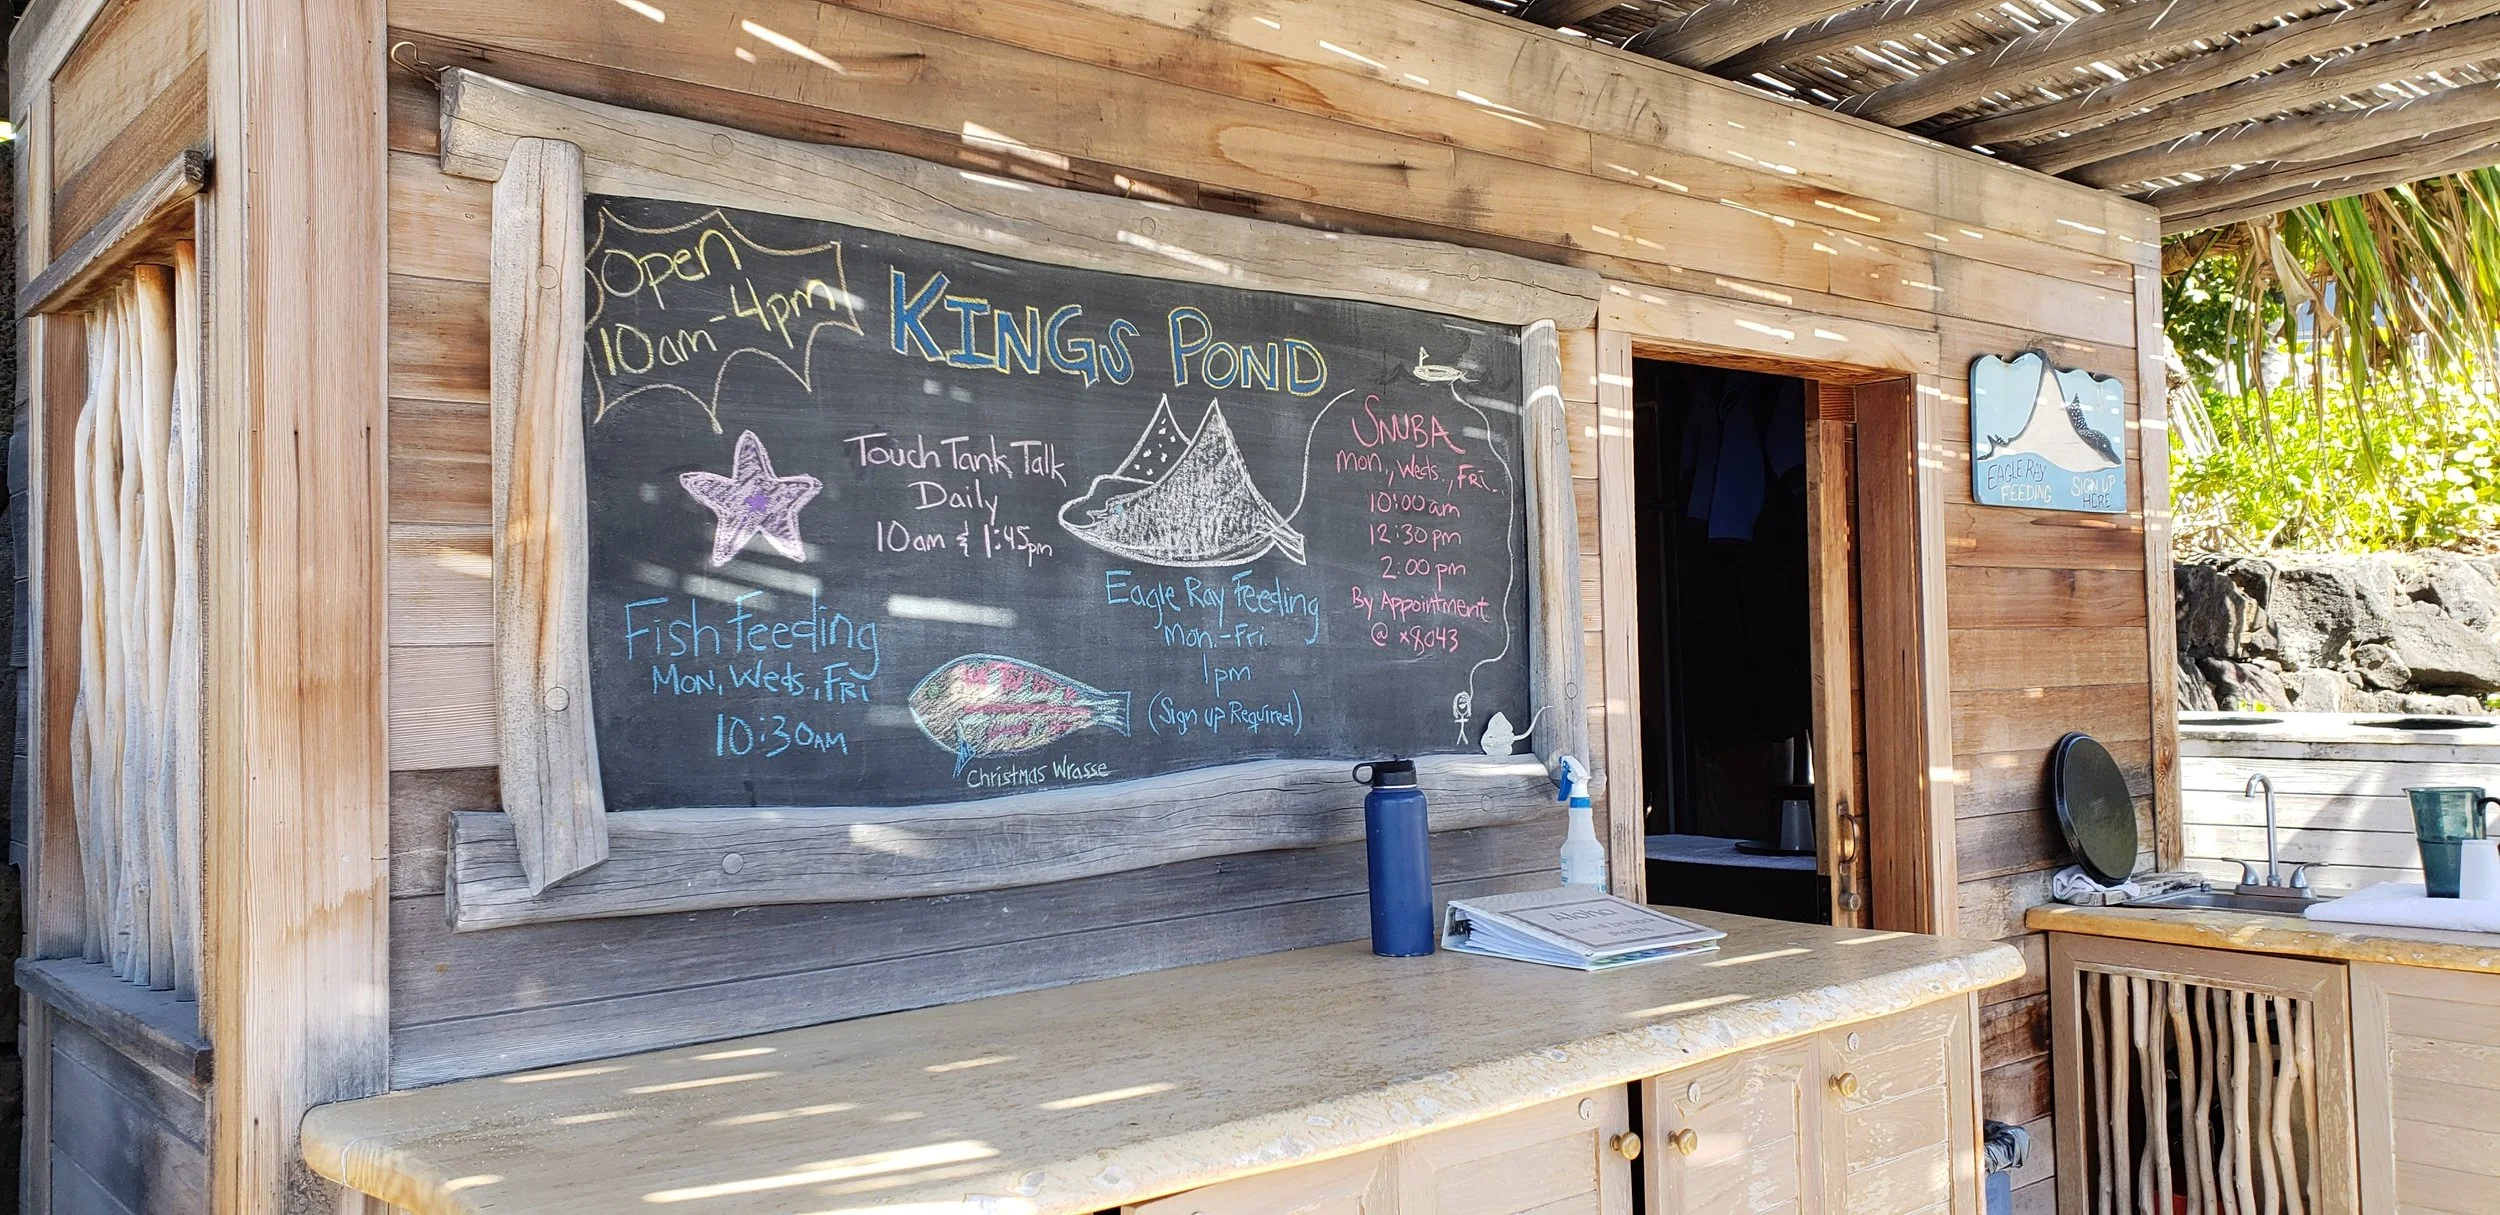 Open
10am-4pm
KINGS POND
Touch Tank Talk
Daily
10am & 1:45pm
Fish Feeding
Mon, Weds., Fri
10:30AM
Christmas Wrasse
Eagle Ray Feeding
Mon.-Fri.
1pm
(Sign up Required)
SNUBA
Mon., Weds., Fri.
10:00am
12:30pm
2:00pm
By Appointment
@ x8043
EAGLE RAY
FEEDING
SIGN UP
HERE
Aloha